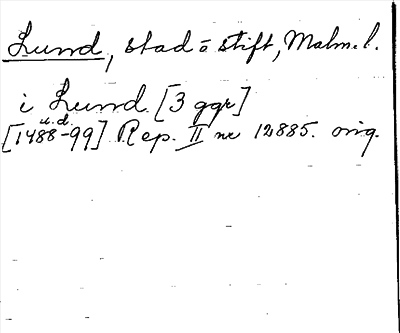 Lund, stad o stift, Malm.l.
i Lund [3 ggr]
u.d.
[1488-99] Rep. II nr 12885. orig.